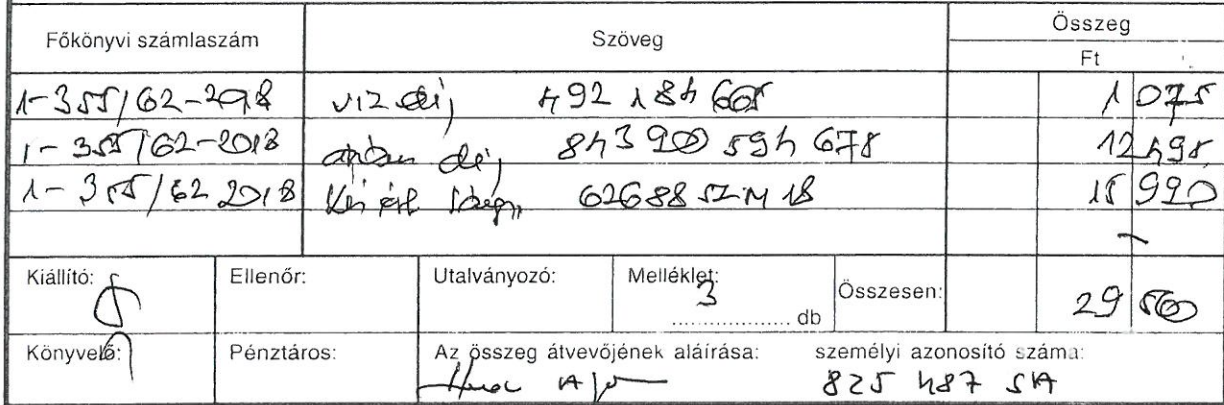 Főkönyvi számlaszám Szöveg Összeg
Ft
1-355/62-2018 víz díj 492 184 605 1 075
1-355/62-2018 díj 843 900 594 678 12 495
1-355/62 2018 62688 SZM 18 15 990
Kiállító: Ellenőr: Utalványozó: Melléklet: 3 db Összesen: 29 560
Könyvelő: Pénztáros: Az összeg átvevőjének aláírása: személyi azonosító száma:
825 487 SA